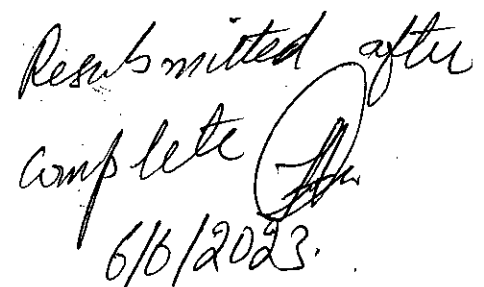 Resubmitted after
complete
6/6/2023.